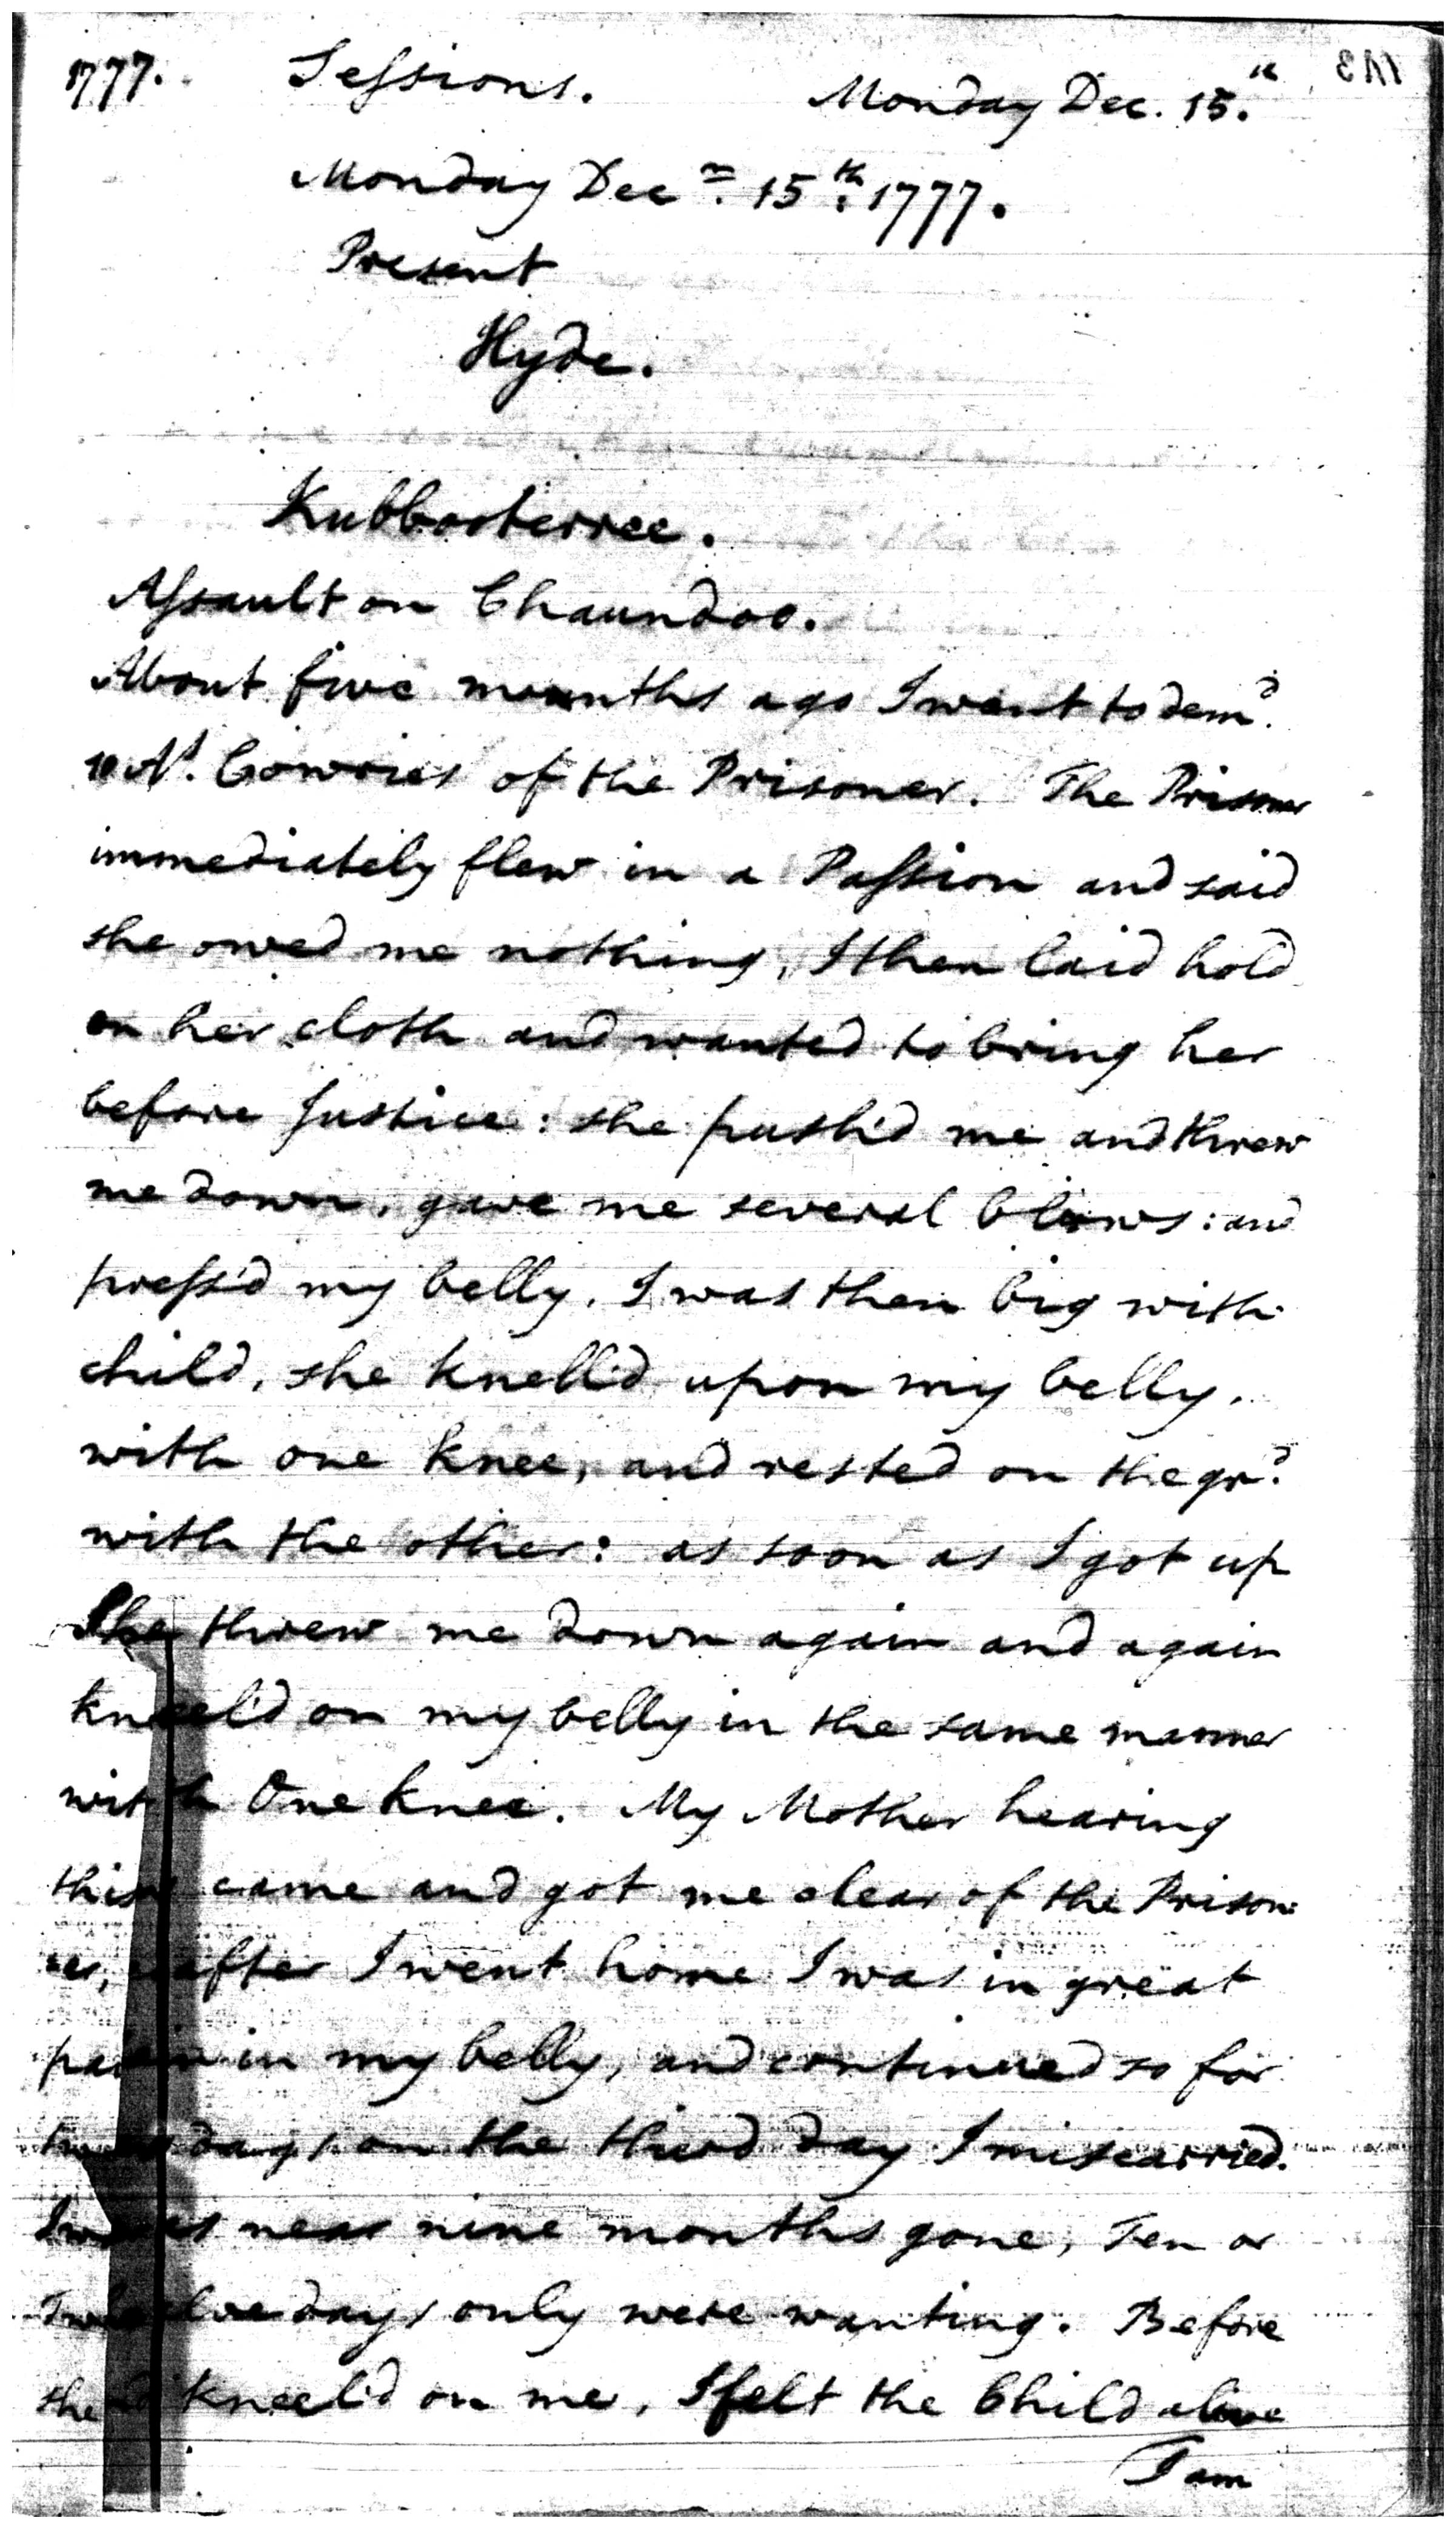 1777. Sessions. Monday Dec. 15.th
Monday Decr. 15th. 1777.
Present
Hyde.
Kubbosterree.
Assault on Chaundoo.
About five months ago I went to demd.
10 As. Cowries of the Prisoner. The Prisoner
immediately flew in a Passion and said
she owed me nothing, I then laid hold
on her cloth and wanted to bring her
before Justice: she push'd me and threw
me down, gave me several blows: and
press'd my belly, I was then big with
child, she knell'd upon my belly,
with one knee, and rested on the grd.
with the other: as soon as I got up
She threw me down again and again
kneel'd on my belly in the same manner
with One knee. My Mother hearing
this came and got me clear of the Prison-
er, after I went home I was in great
pain in my belly, and continued so for
two days on the third day I miscarried.
I was near nine months gone, Ten or
Twelve days only were wanting. Before
she kneel'd on me, I felt the Child alive
I am